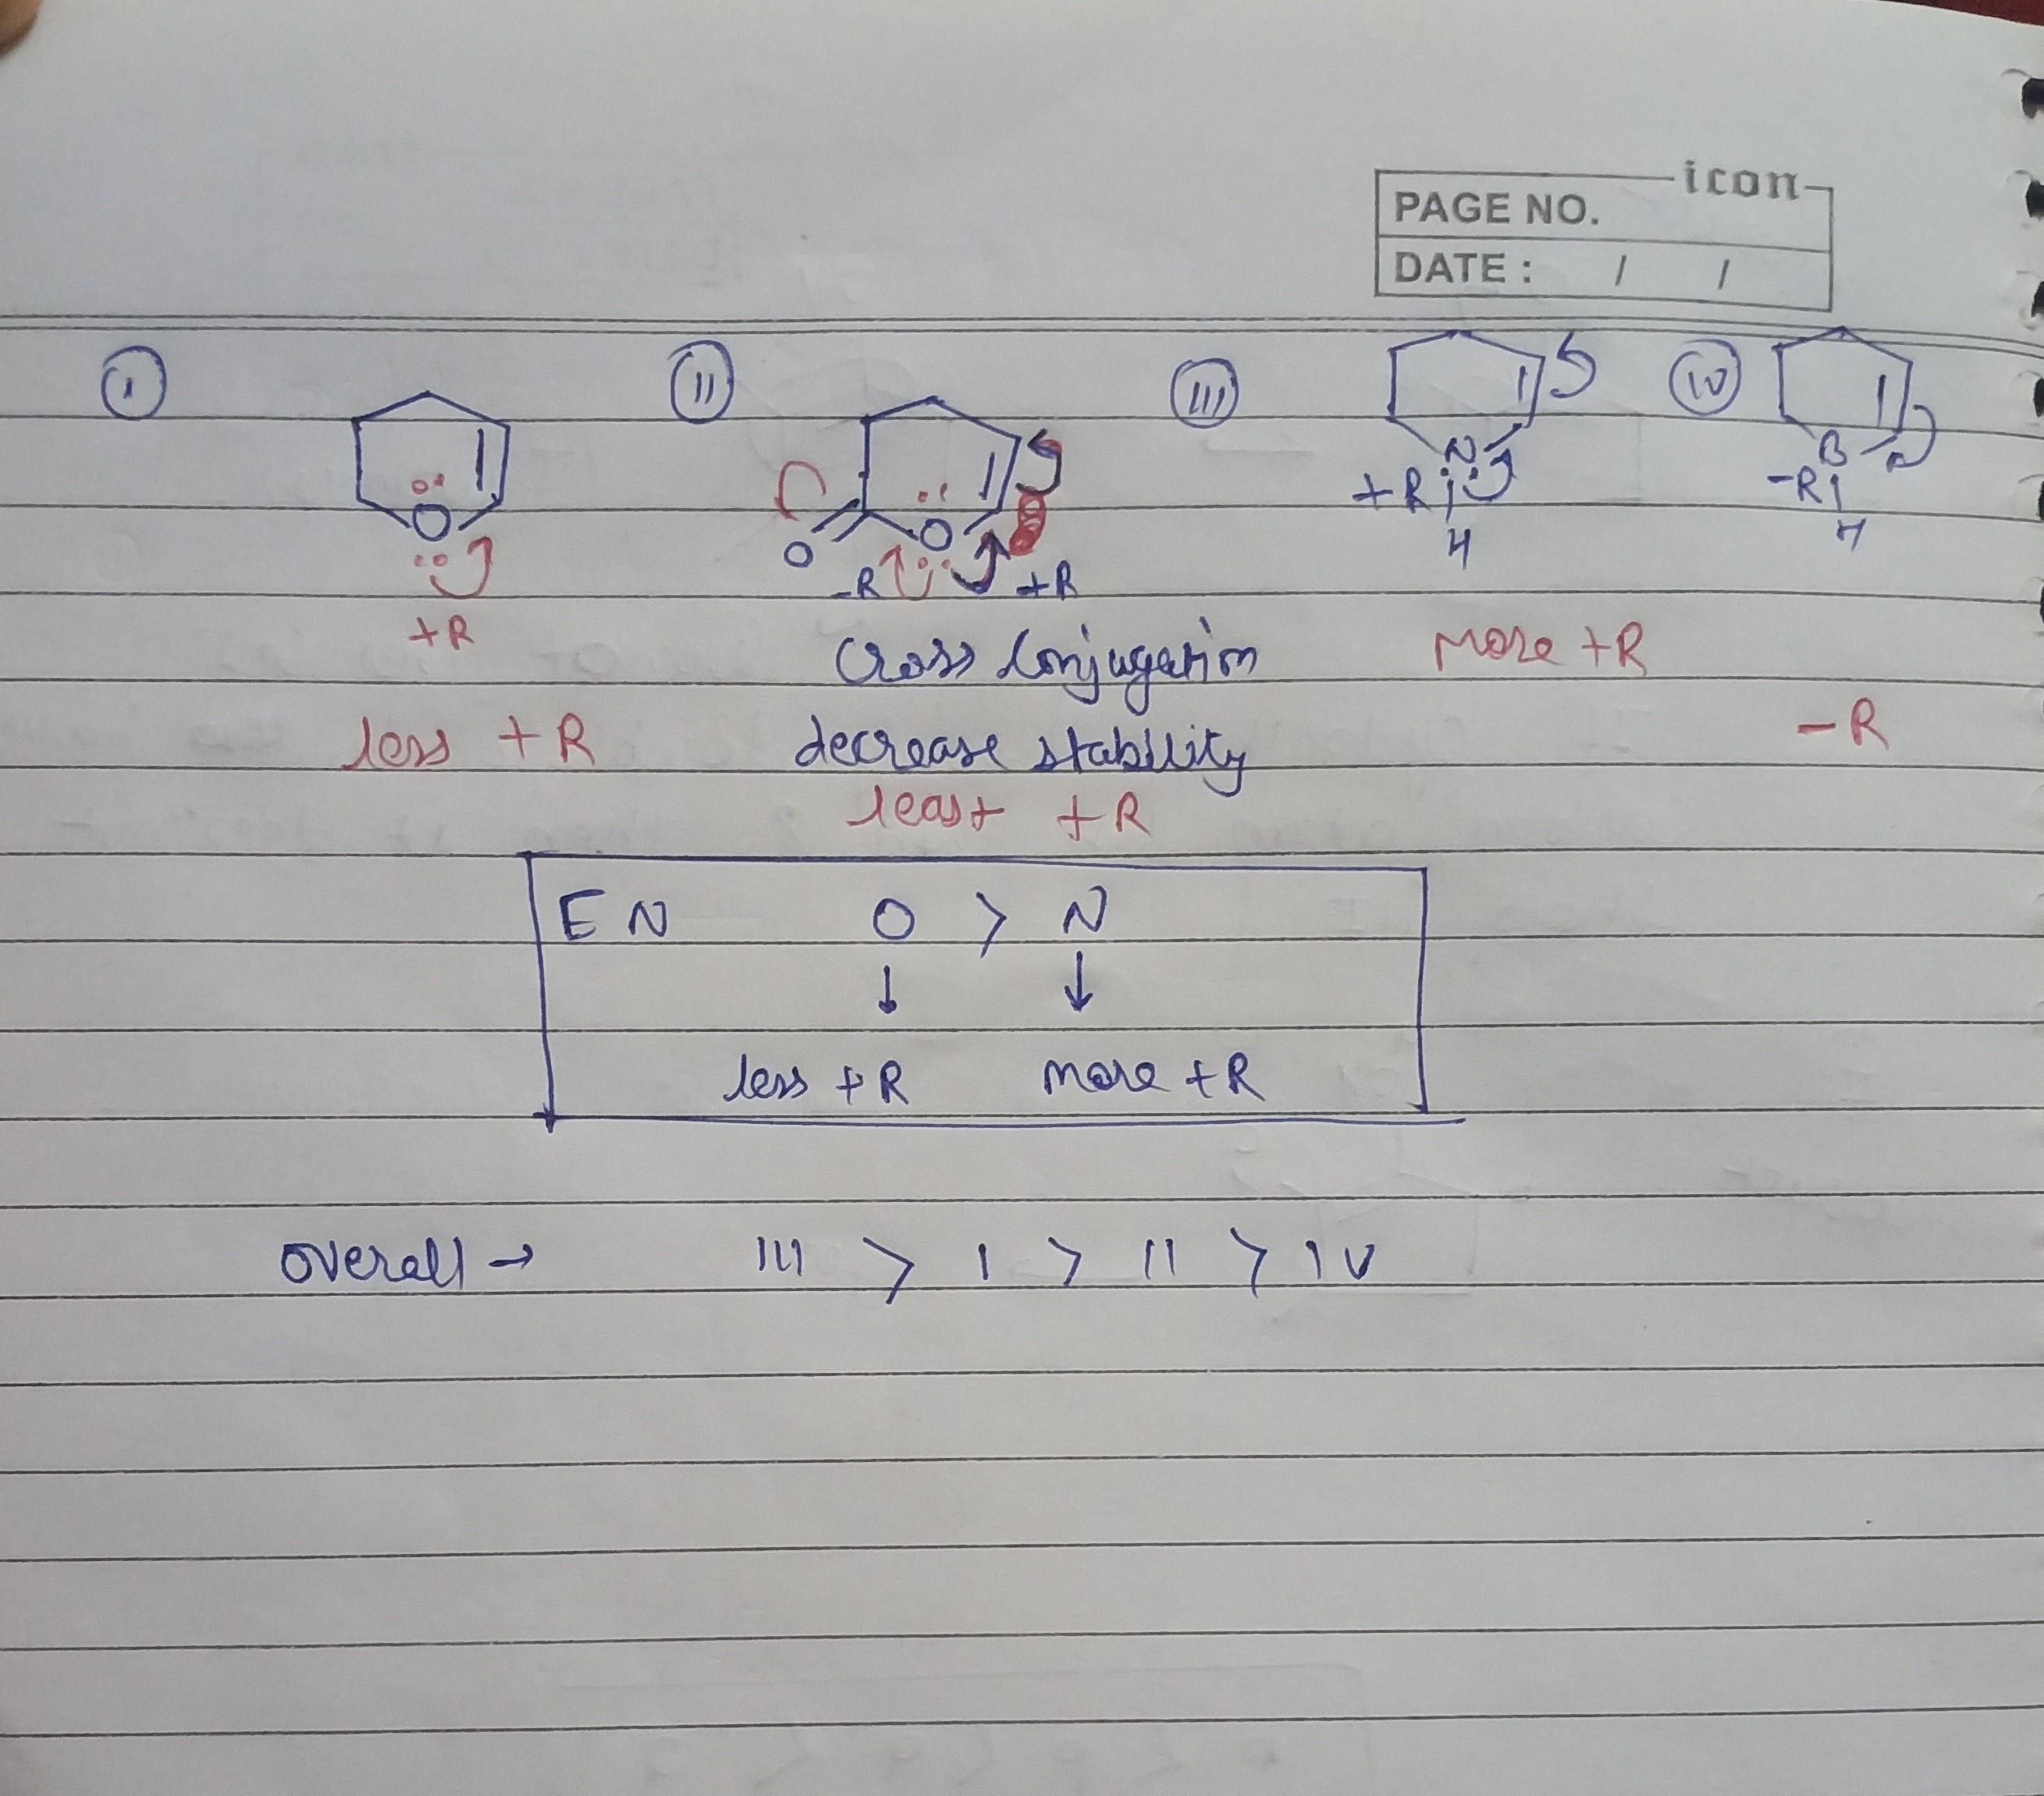 icon
PAGE NO.
DATE : / /
I II III IV
O O O N H B H
+R -R +R +R -R
Cross Conjugation more +R
less +R decrease stability -R
least +R
EN O > N
↓ ↓
less +R more +R
overall → III > I > II > IV